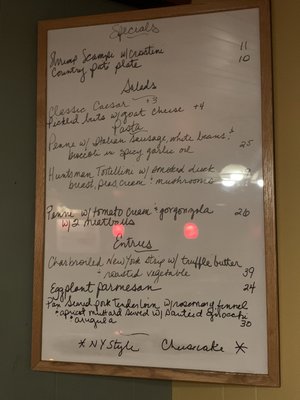 Specials
Shrimp Scampi w/crostini 11
Country pate plate 10
Salads
Classic Caesar +3
Pickled beets w/goat cheese +4
Pasta
Penne w/ Italian Sausage, white beans, +
broccoli in spicy garlic oil 25
Huntsman Tortellini w/ smoked duck
breast, peas cream + mushrooms
Penne w/ Tomato Cream & gorgonzola 26
w/2 meatballs
Entrees
Charbroiled New York Strip w/ truffle butter
+ roasted vegetable 39
Eggplant parmesan 24
Pan Seared pork Tenderloin w/rosemary fennel
+ apricot mustard served w/ Sauteed gnocchi
+ arugula 30
* NY Style Cheescake *